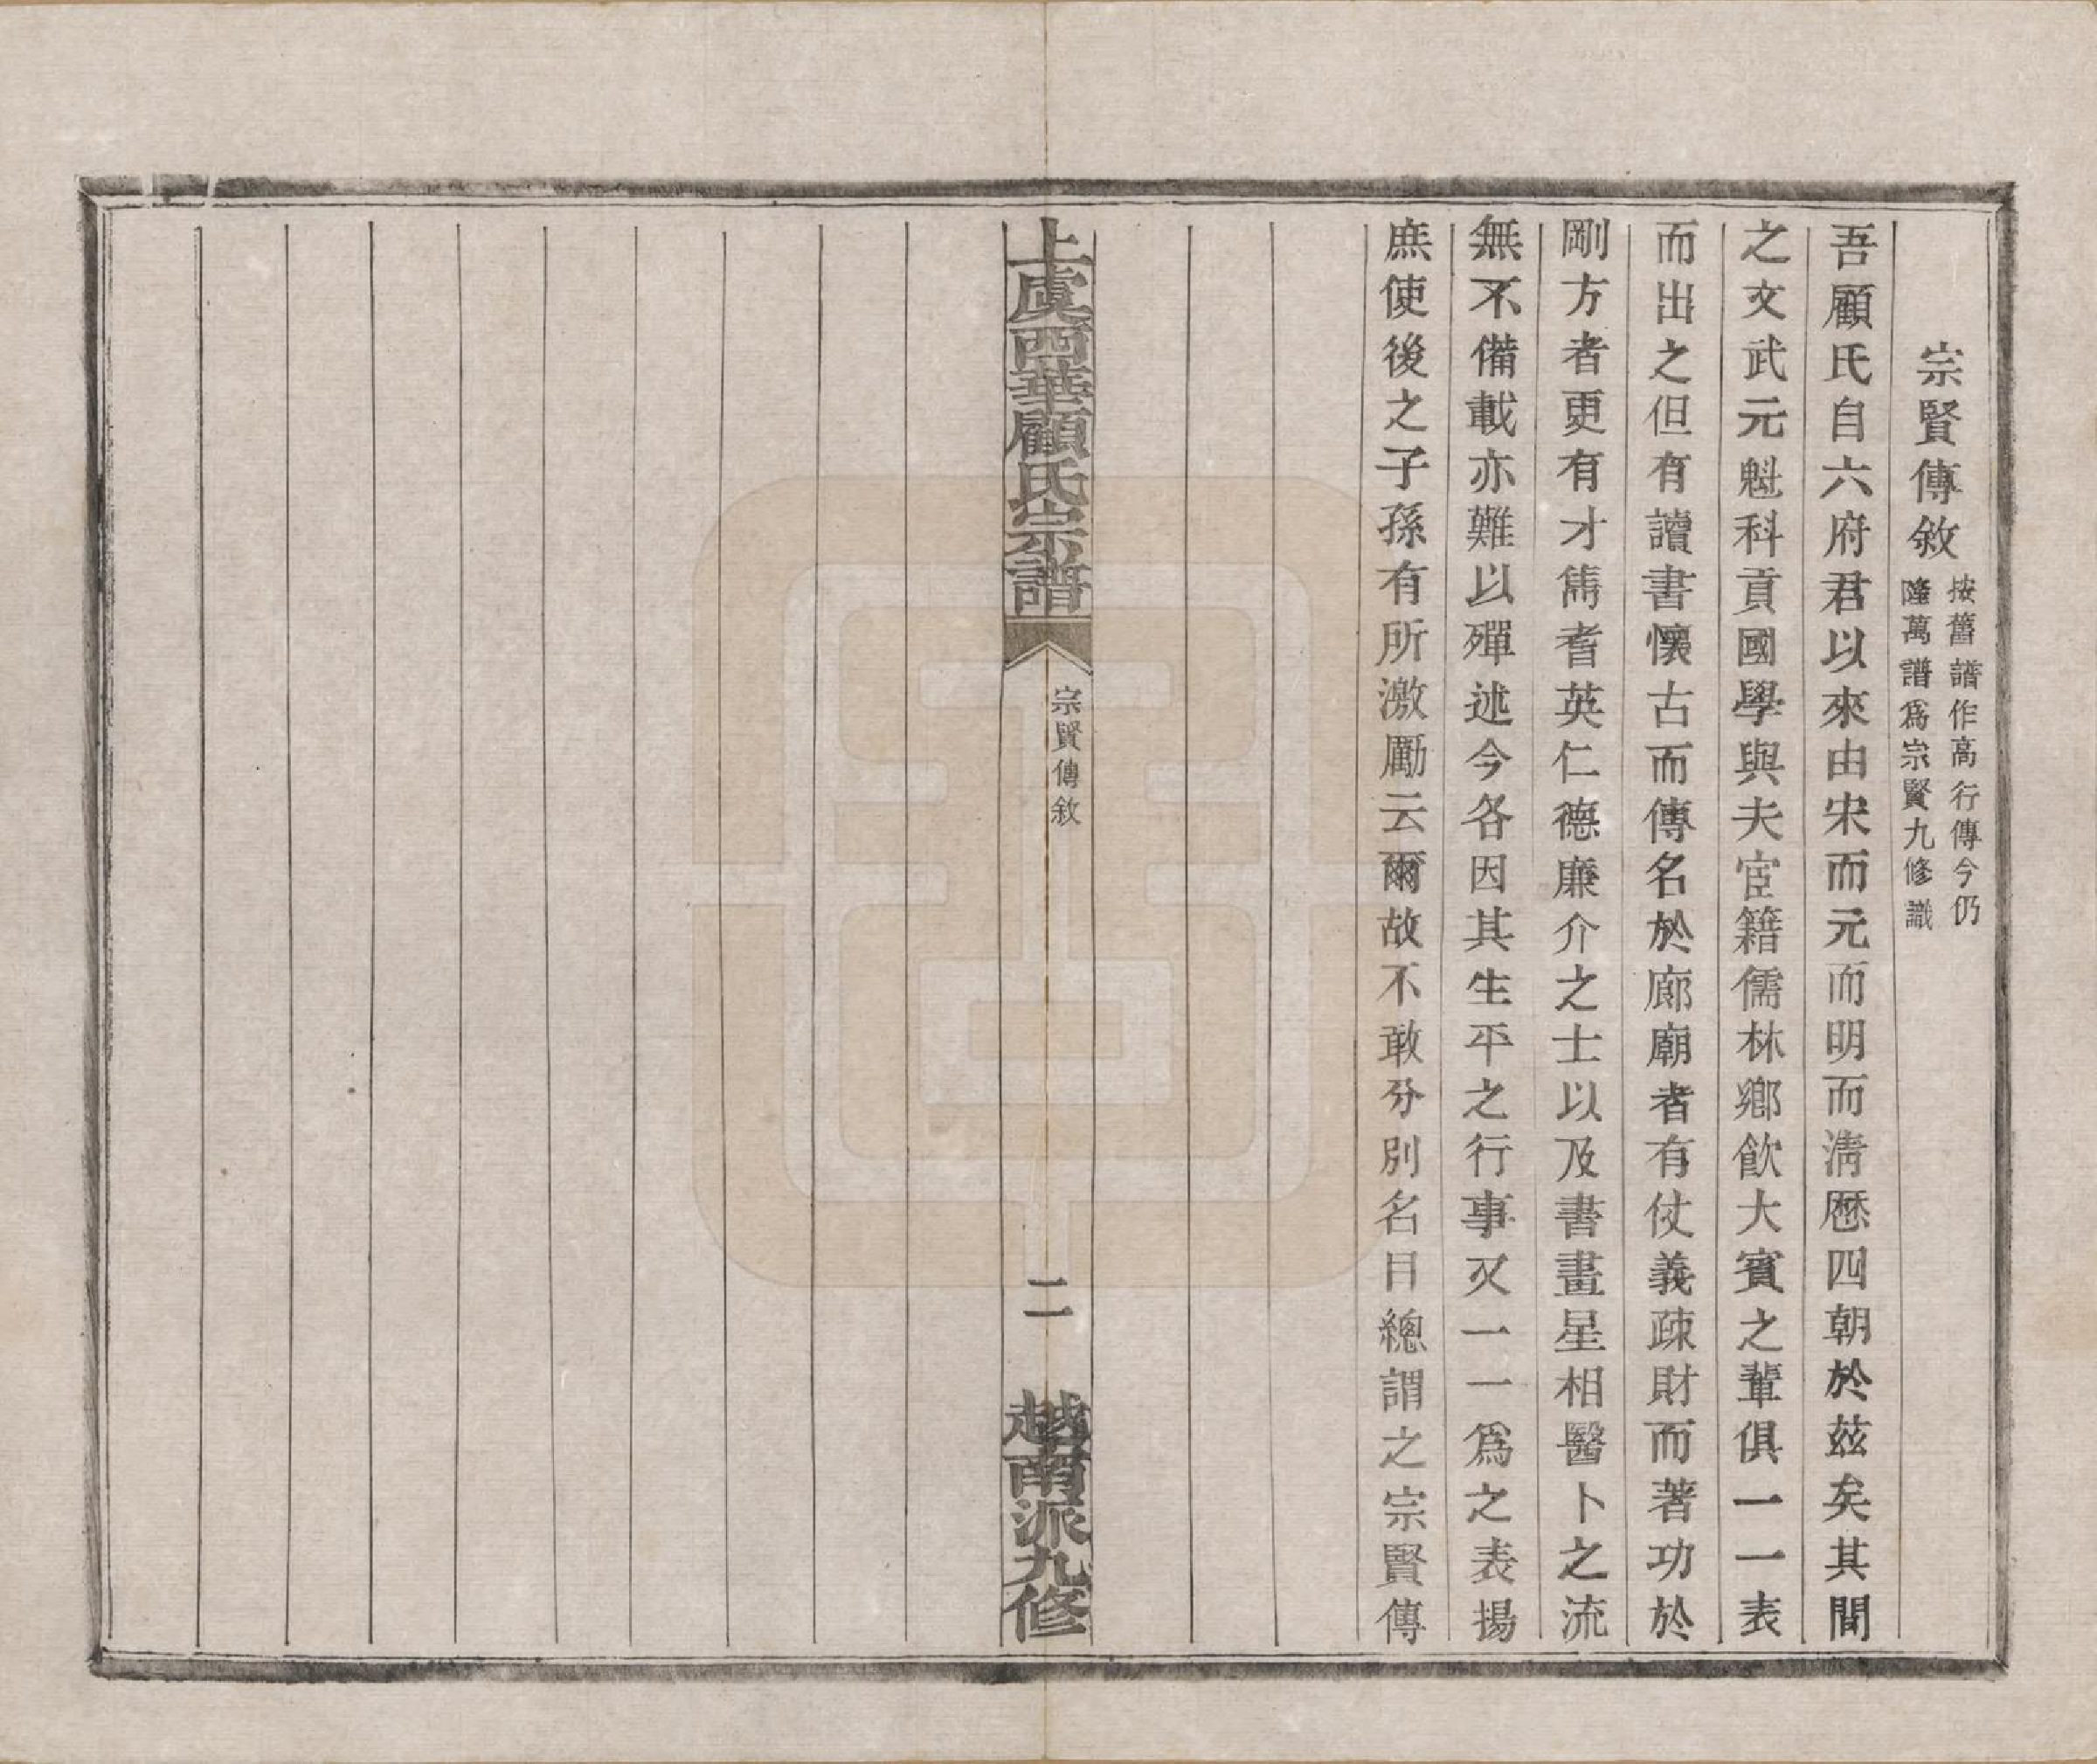 宗賢傳敘
按舊譜作高行傳今仍
隆萬譜爲宗賢九修識
吾顧氏自六府君以來由宋而元而明而淸歷四朝於茲矣其間
之文武元魁科貢國學與夫宦籍儒林鄉飮大賓之輩俱一一表
而出之但有讀書懷古而傳名於廊廟者有仗義疎財而著功於
剛方者更有才雋耆英仁德廉介之士以及書畫星相醫卜之流
無不備載亦難以殫述今各因其生平之行事又一一爲之表揚
庶使後之子孫有所激勵云爾故不敢分別名目總謂之宗賢傳
上虞西華顧氏宗譜
宗賢傳敘
二
越南派九修